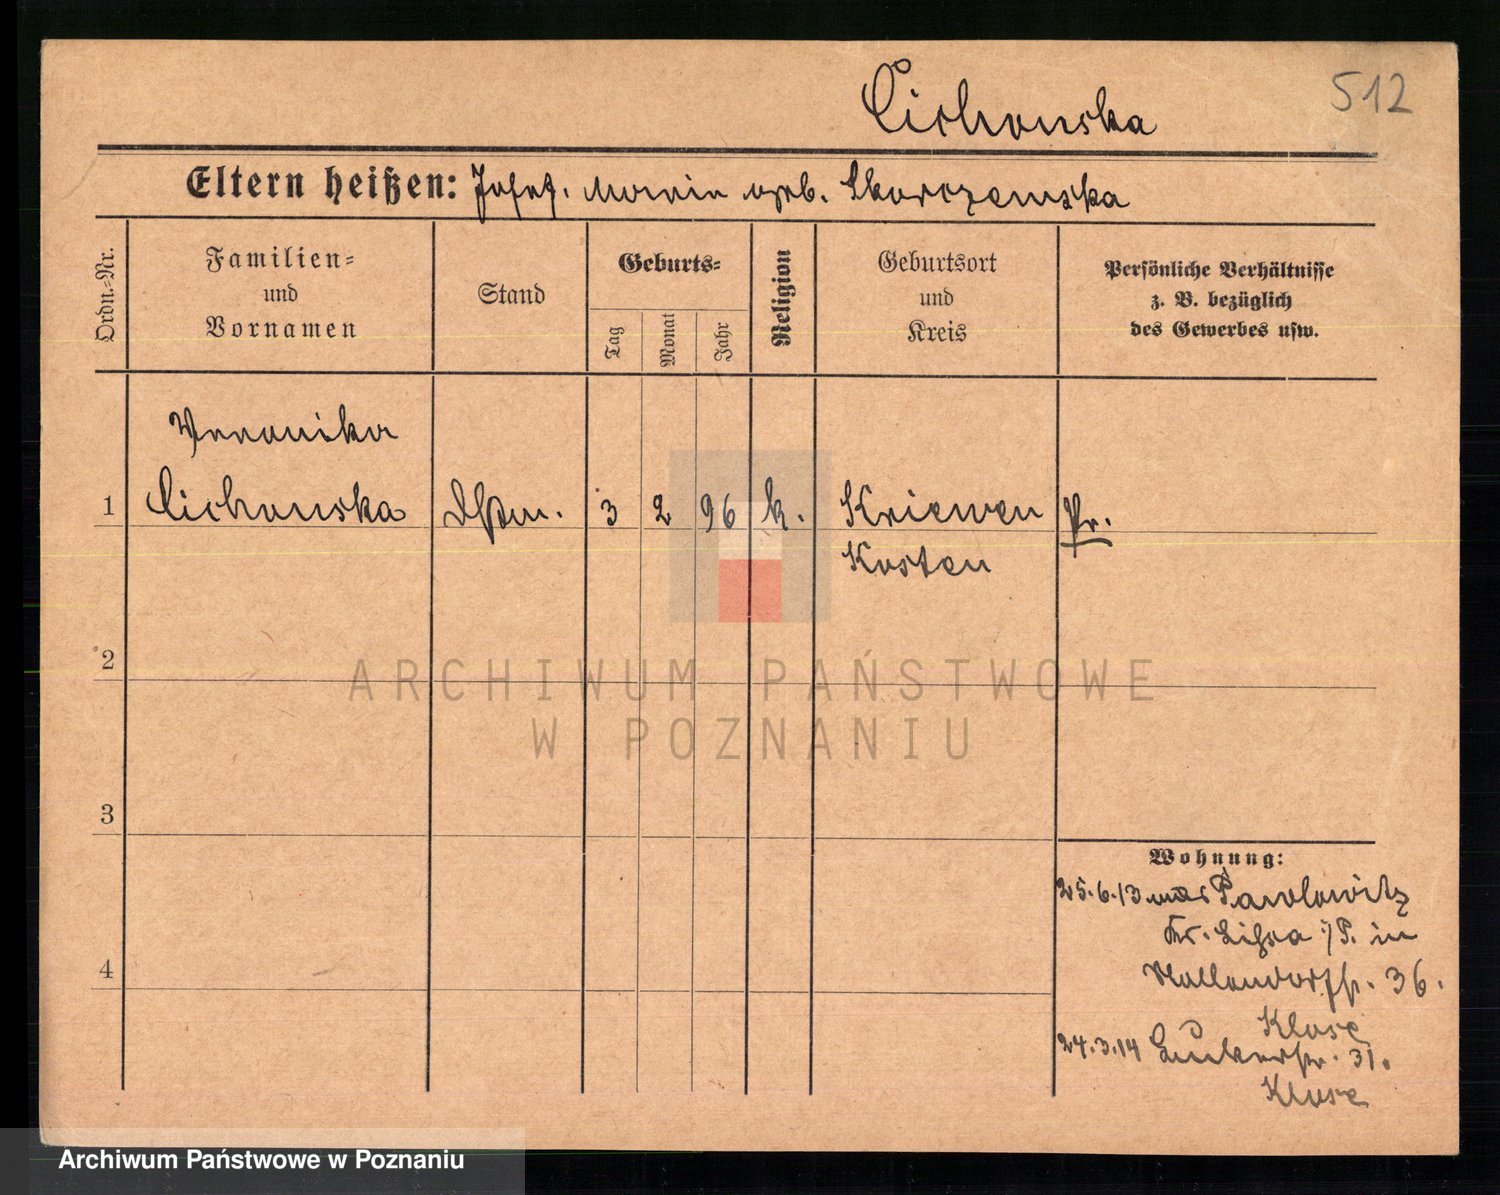 Cichonska
512
Eltern heißen: Josef. Maria geb. Skorczewska
Ordn.-Nr.
Familien-
und
Vornamen
Stand
Geburts-
Tag
Monat
Jahr
Religion
Geburtsort
und
Kreis
Persönliche Verhältnisse
z. B. bezüglich
des Gewerbes usw.
Veronika
1 Cichonska 3 2 96 k. Kriewen Pr.
Kosten
2
ARCHIWUM PAŃSTWOWE
W POZNANIU
3
Wohnung:
25.6.13 aus Pawlowitz
Kr. Lissa i/P. in
36.
Klose
4
24.3.14 31.
Klose
Archiwum Państwowe w Poznaniu